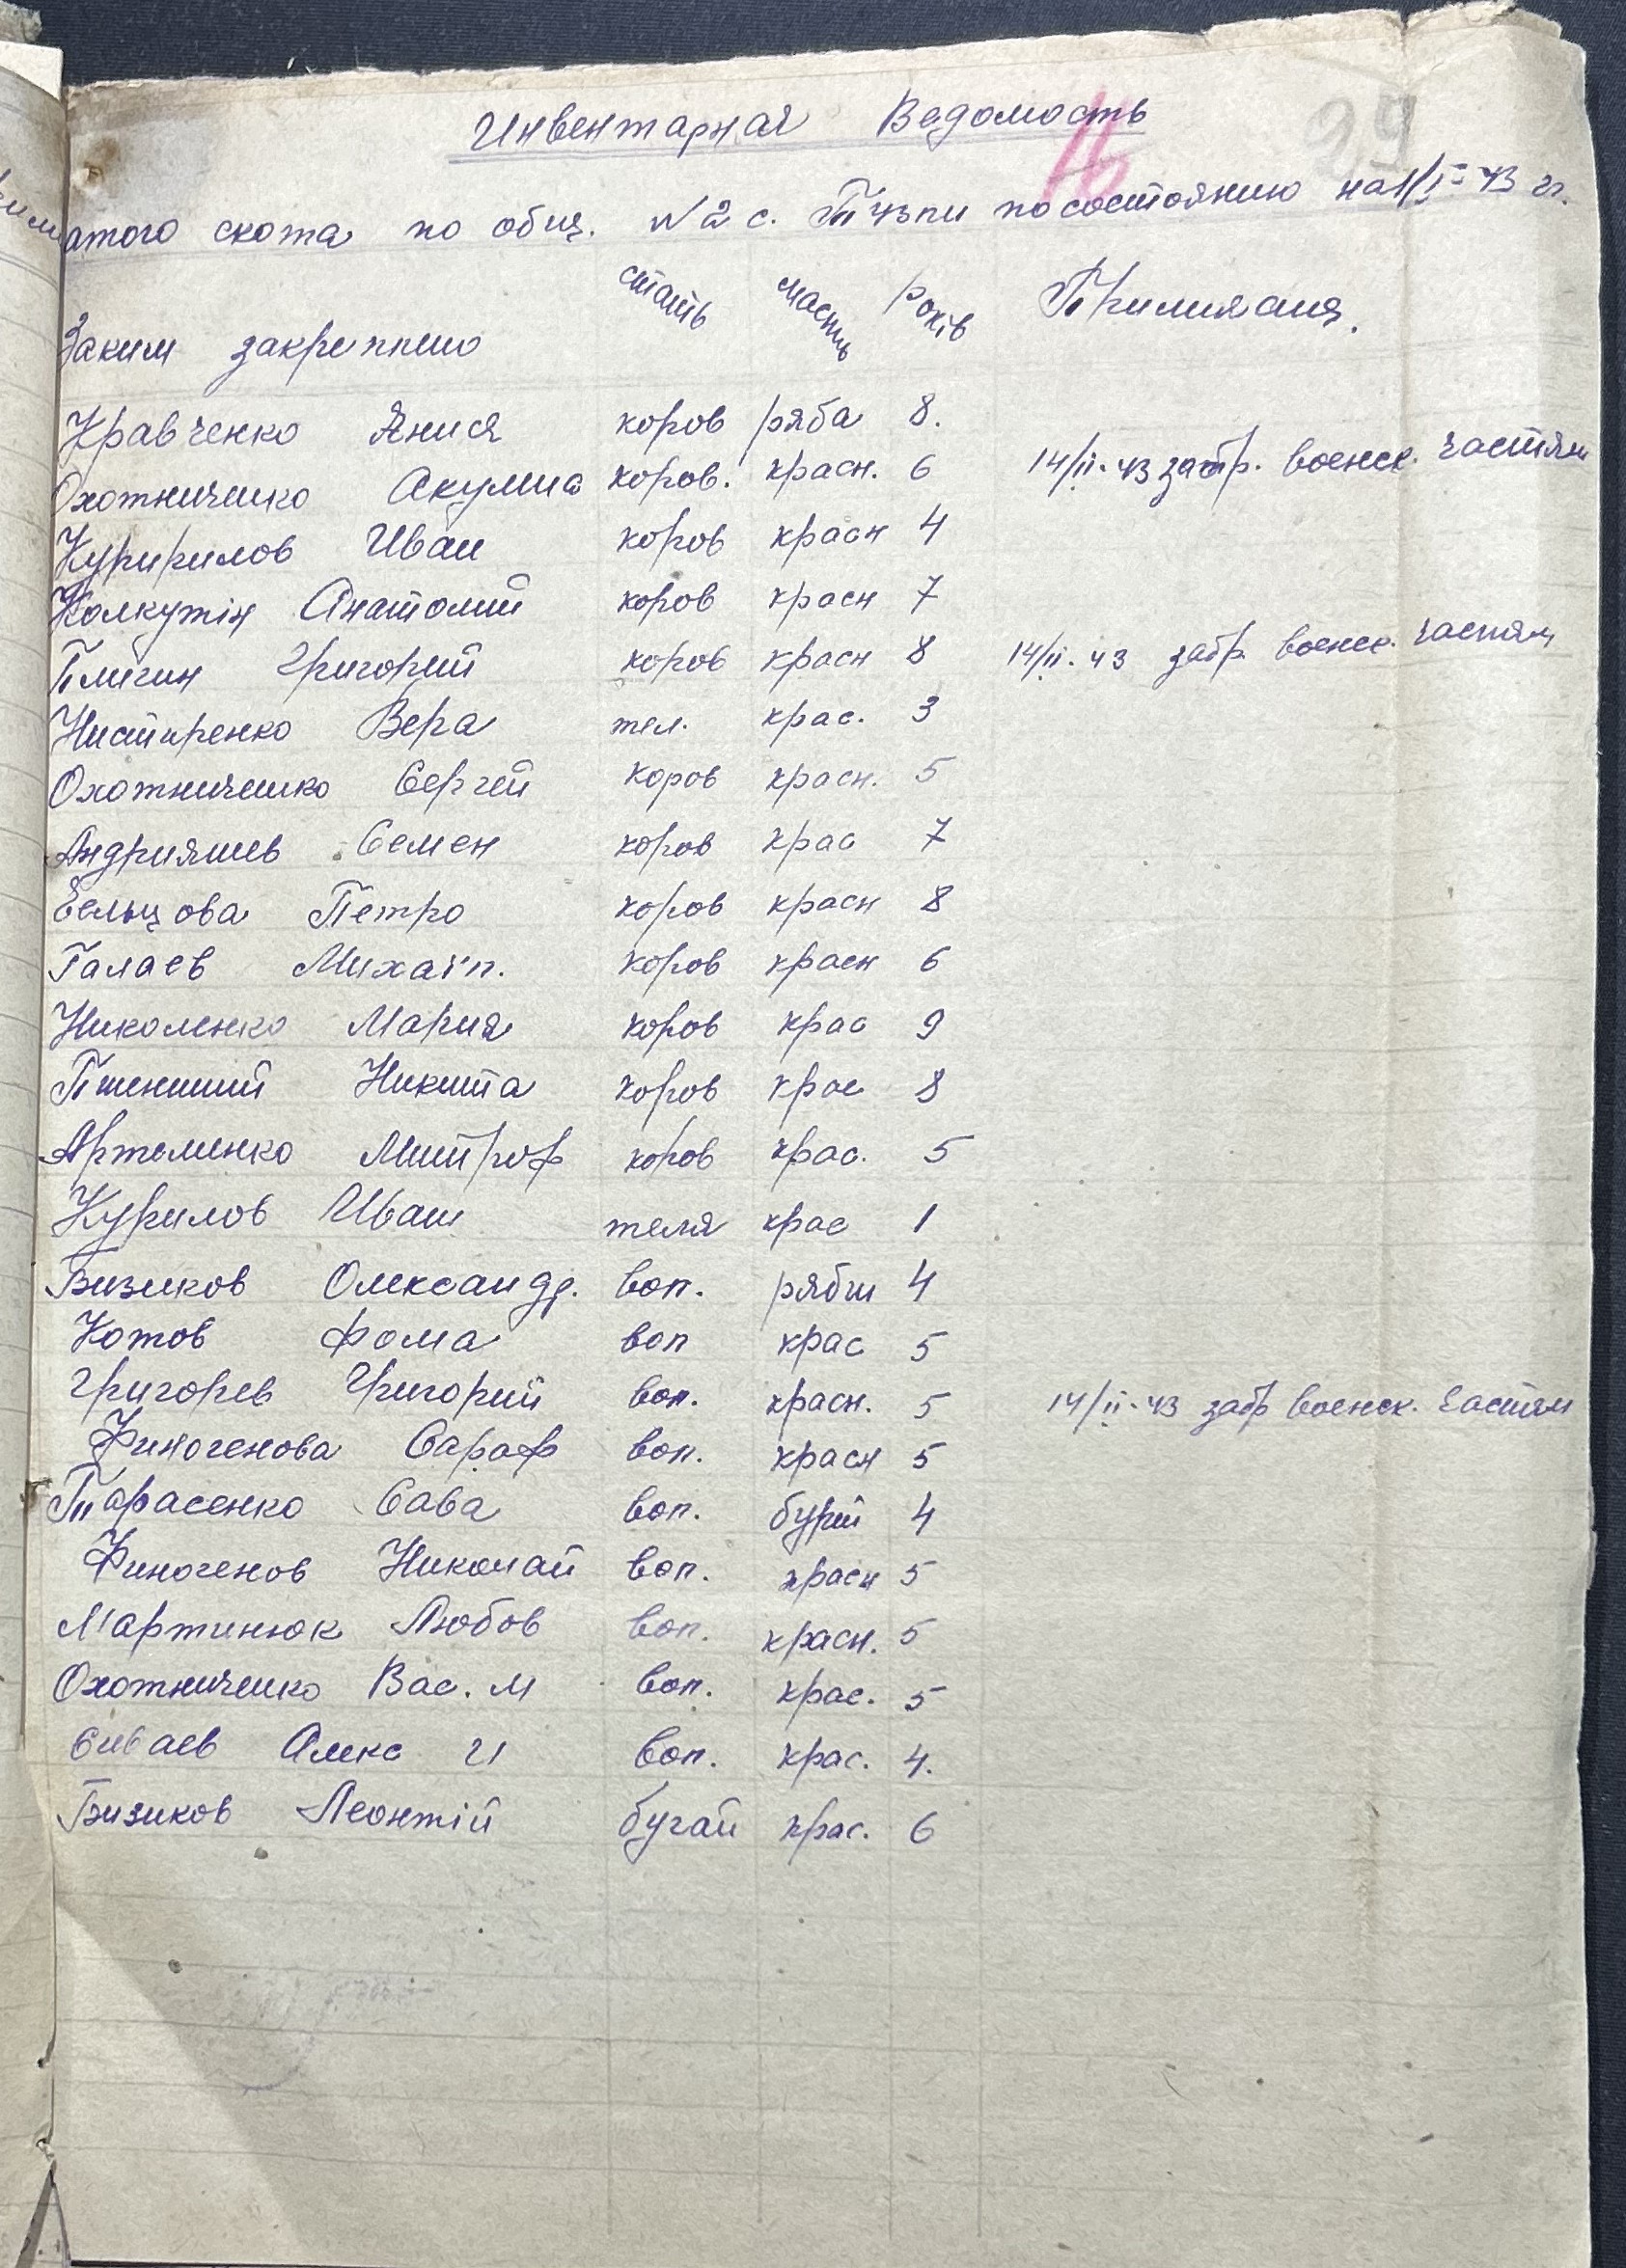 Инвентарная Ведомость
16
атого скота по общ. N2 с. по состоянию на 1/I-43 гг.
Заким закреплено стать масть років Примичание
Кравченко Янися коров ряба 8.
Охотниченко Акулина коров. красн. 6 14/II-43 забр. военск. частям
Куририлов Иван коров красн 4
Колкутін Анатолий коров красн 7
Плигин Григорий коров красн 8 14/II-43 забр. военск. частям
Нистиренко Вера тел. крас. 3
Охотниченко Сергей коров красн. 5
Андрияшев Семен коров крас 7
Бельцова Петро коров красн 8
Галаев Михаїл. коров красн 6
Николенко Мария коров крас 9
Пшениший Никита коров крас 8
Артеменко Митроф коров крас. 5
Курилов Иван теля крас 1
Бизиков Олександр. вол. рябий 4
Котов Фома вол крас 5
Григорев Григорий вол. красн. 5 14/II-43 забр военск. частям
Финогенова Сараф вол. красн 5
Тарасенко Сава вол. бурий 4
Финогенов Николай вол. красн 5
Мартинюк Любов вол. красн. 5
Охотниченко Вас. М вол. крас. 5
Сиваев Алекс И вол. крас. 4.
Бизиков Леонтій бугай крас. 6